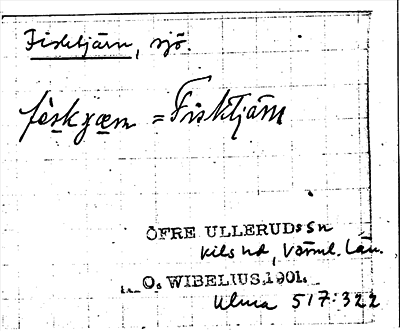 Fisktjärn, sjö.
fèskɟæm = Fisktjärn
ÖFRE ULLERUDssn
Kils hd, Värml. län.
O. WIBELIUS.1901.
Ulma 517:322